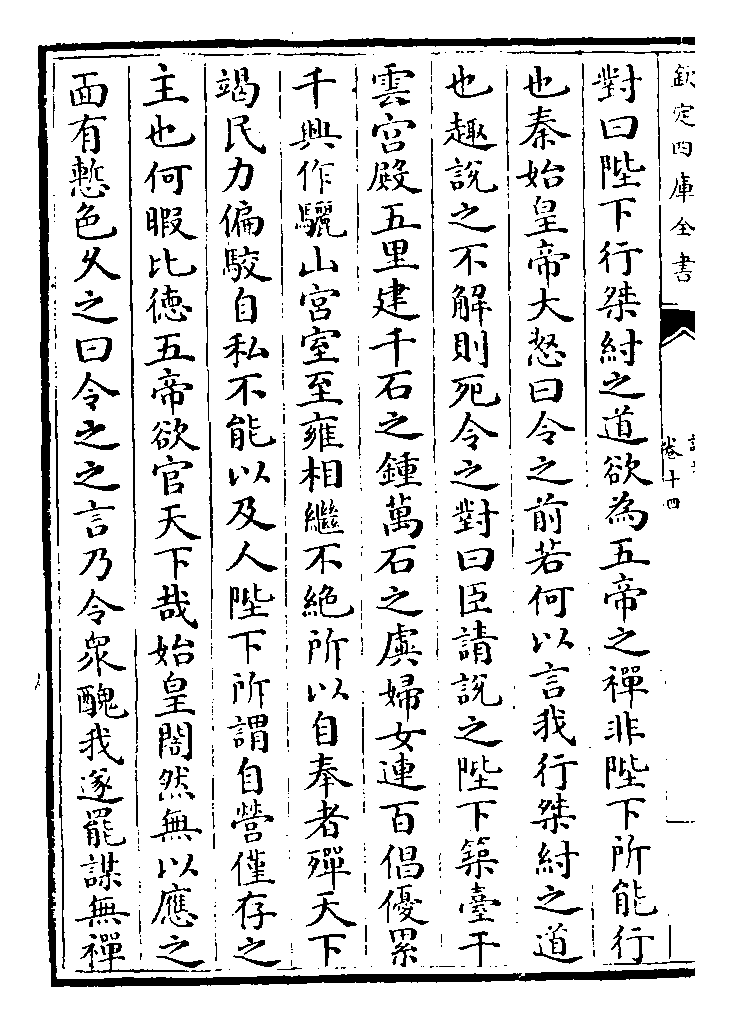 欽定四庫全書
卷十四
對曰陛下行桀紂之道欲為五帝之禪非陛下所能行
也秦始皇帝大怒曰令之前若何以言我行桀紂之道
也趣說之不解則死令之對曰臣請說之陛下築臺干
雲宫殿五里建千石之鍾萬石之虡婦女連百倡優累
千興作驪山宫室至雍相繼不絶所以自奉者殫天下
竭民力偏駮自私不能以及人陛下所謂自營僅存之
主也何暇比徳五帝欲官天下哉始皇闇然無以應之
面有慙色久之曰令之之言乃令衆醜我遂罷謀無禪